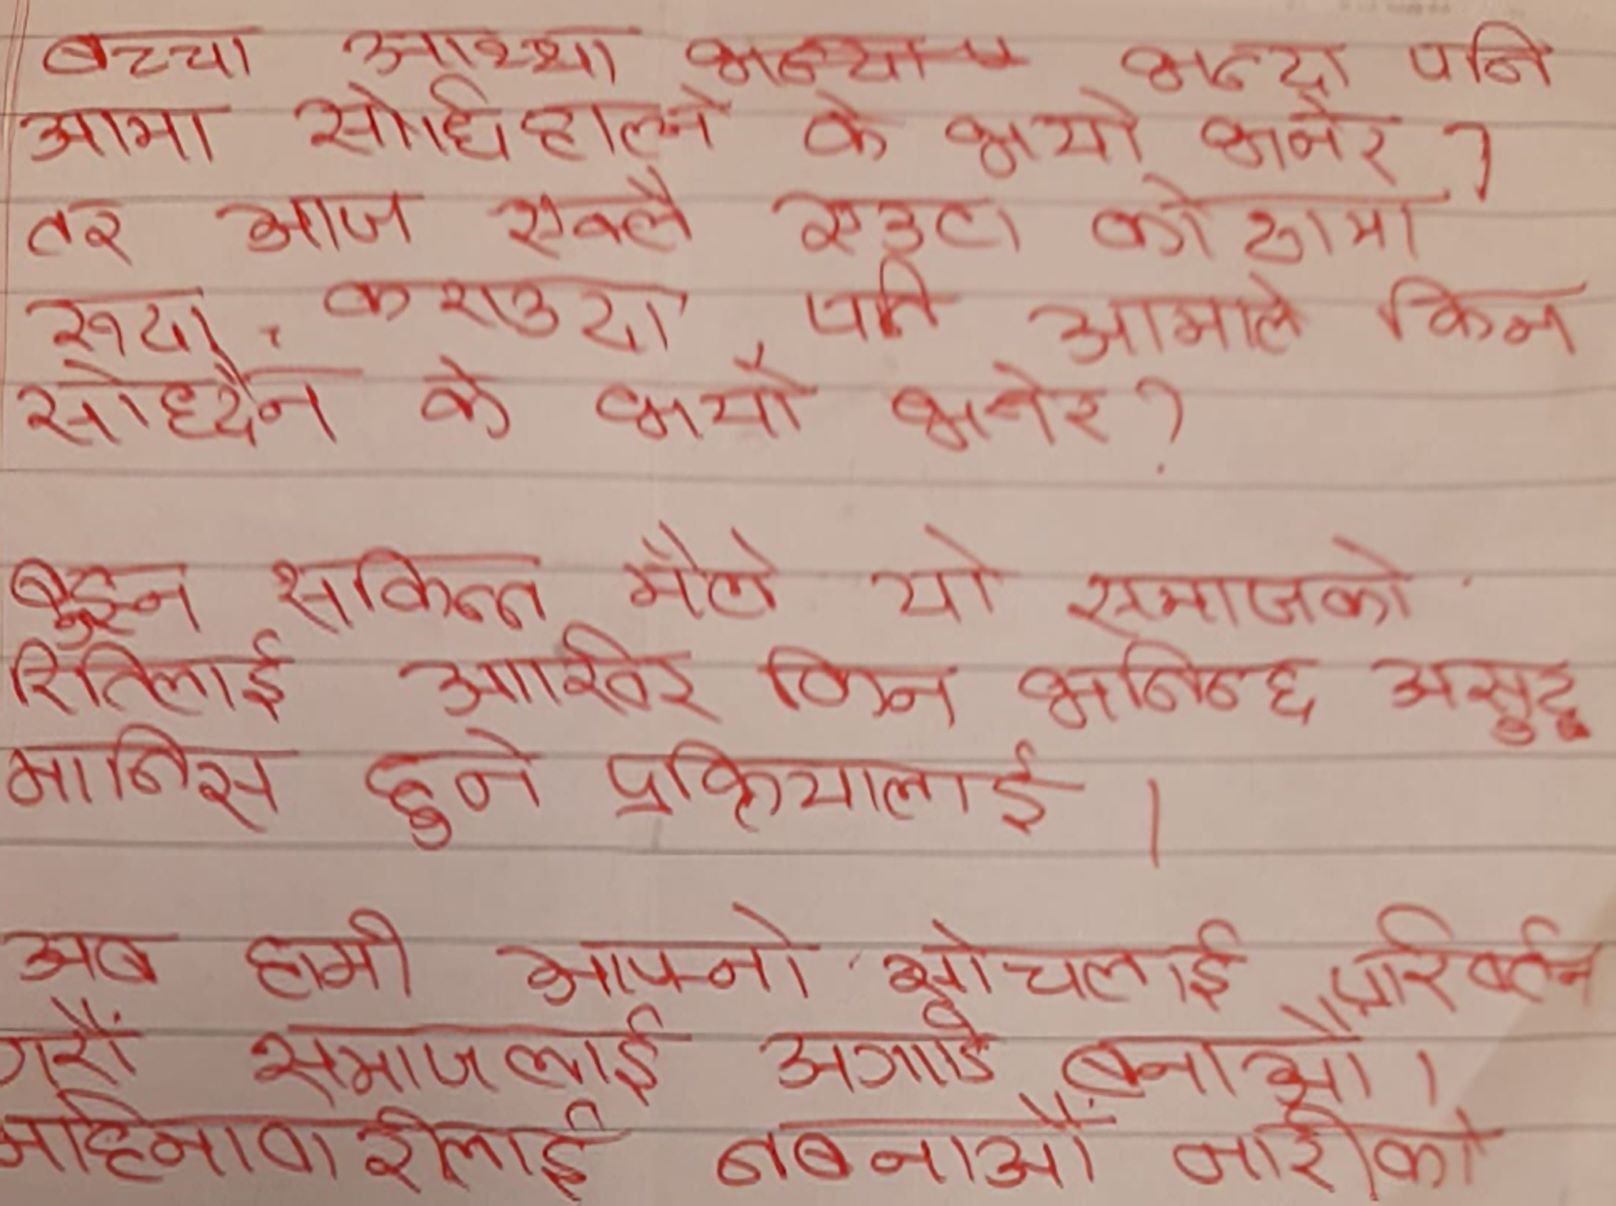 बच्चा आथ्था भन्दा पनि
आमा सोधिहाल्ने के भयो भनेर ?
तर आज एक्लै एउटा कोठामा
रुदा, कराउदा पनि आमाले किन
सोध्दैन के भयो भनेर ?
बुझ्न सकिन्न मैले यो समाजको
रितिलाई आखिर किन भनिन्छ असुद्ध
मानिस छुने प्रक्रियालाई ।
अब हामी आफ्नो सोचलाई परिवर्तन
गरौं समाजलाई अगाडि बनाऔं ।
महिनावारीलाई नबनाऔं नारीको